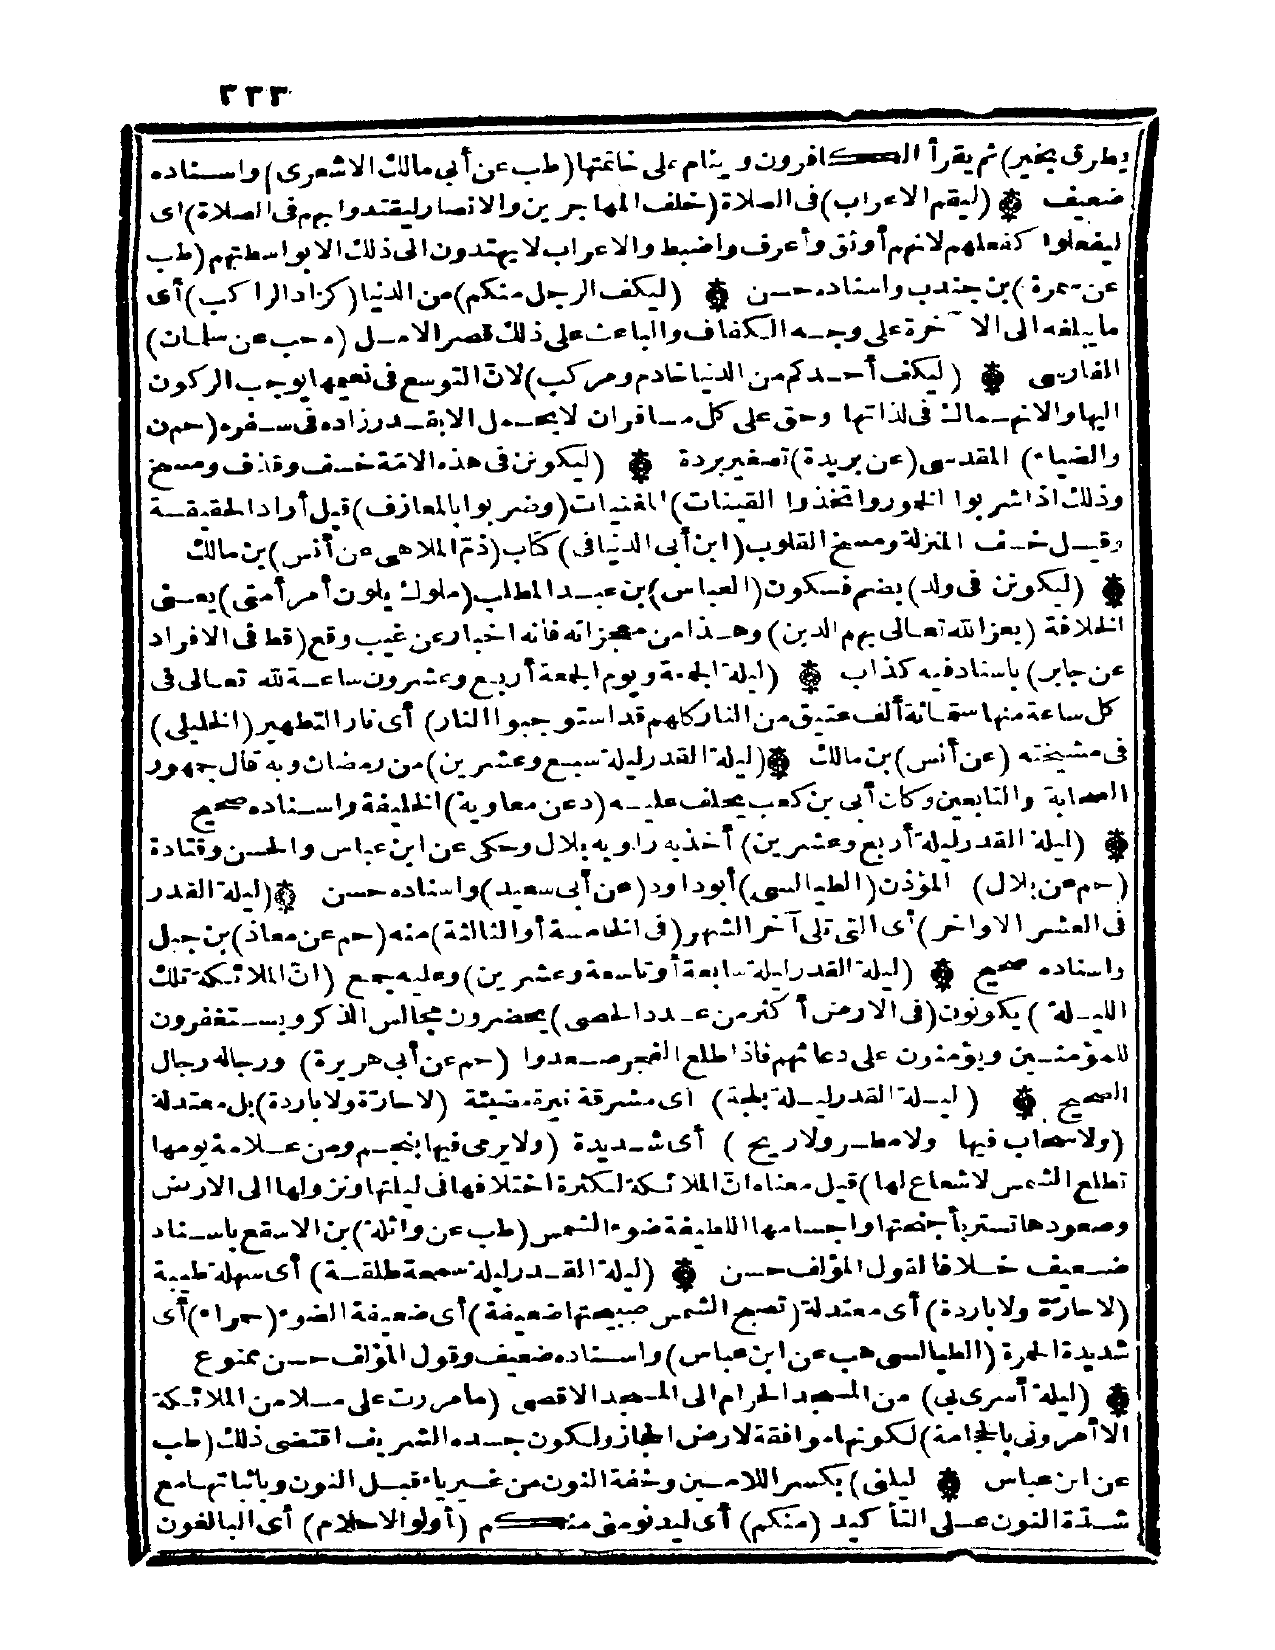 ٣٣٣
يطرق بخير) ثم يقرأ الكافرون وينام على خاتمتها (طب عن أبي مالك الاشعرى) واسناده
ضعيف ۞ (ليقم الاعراب) فى الصلاة (خلف المهاجرين والانصار ليقتدوا بهم فى الصلاة) اى
ليفعلوا كفعلهم لانهم أوثق وأعرف واضبط والاعراب لا يهتدون الى ذلك الا بواسطتهم (طب
عن سمرة) بن جندب واسناده حسن ۞ (ليكف الرجل منكم) من الدنيا (كزاد الراكب) أى
ما يبلغه الى الا ٓخرة على وجه الكفاف والباعث على ذلك قصر الامل (ه حب عن سلمان)
الفارسى ۞ (ليكف أحدكم من الدنيا خادم ومركب) لانّ التوسع فى نعيمها يوجب الركون
اليها والانهماك فى لذاتها وحق على كل مسافر ان لا يحمل الا بقدر زاده فى سفره (حم ن
والضياء) المقدسى (عن بريدة) تصغير بردة ۞ (ليكونن فى هذه الامّة خسف وقذف ومسخ
وذلك اذا شربوا الخمور واتخذوا القينات) المغنيات (وضربوا بالمعازف) قيل أراد الحقيقة
وقيل خسف المنزلة ومسخ القلوب (ابن أبى الدنيا فى) كتاب (ذمّ الملاهى عن أنس) بن مالك
۞ (ليكونن فى ولد) بضم فسكون (العباس) بن عبد المطلب (ملوك يلون أمر أمتى) يعنى
الخلافة (يعز الله تعالى بهم الدين) وهذا من معجزاته فانه اخبار عن غيب وقع (قط فى الافراد
عن جابر) باسناد فيه كذاب ۞ (ليلة الجمعة ويوم الجمعة أربع وعشرون ساعة لله تعالى فى
كل ساعة منها ستمائة ألف عتيق من النار كلهم قد استوجبوا النار) أى نار التطهير (الخليلى)
فى مشيخته (عن أنس) بن مالك ۞ (ليلة القدر ليلة سبع وعشرين) من رمضان وبه قال جمهور
الصحابة والتابعين وكان أبى بن كعب يحلف عليه (د عن معاوية) الخليفة واسناده صحيح
۞ (ليلة القدر ليلة أربع وعشرين) أخذ به راويه بلال وحكى عن ابن عباس والحسن وقتادة
(حم عن بلال) المؤذن (الطيالسى) أبو داود (عن أبى سعيد) واسناده حسن ۞ (ليلة القدر
فى العشر الاواخر) أى التى تلى آخر الشهر (فى الخامسة أو الثالثة) منه (حم عن معاذ) بن جبل
واسناده صحيح ۞ (ليلة القدر ليلة سابعة أو تاسعة وعشرين) وعليه جمع (انّ الملائكة تلك
الليلة) يكونون (فى الارض أكثر من عدد الحصى) يحضرون مجالس الذكر ويستغفرون
للمؤمنين ويؤمنون على دعائهم فاذا طلع الفجر صعدوا (حم عن أبى هريرة) ورجاله رجال
الصحيح ۞ (ليلة القدر ليلة بلجة) اى مشرقة نيرة مضيئة (لا حارّة ولا باردة) بل معتدلة
(ولا سحاب فيها ولا مطر ولا ريح) أى شديدة (ولا يرمى فيها بنجم ومن علامة يومها
تطلع الشمس لا شعاع لها) قيل معناه انّ الملائكة لكثرة اختلافها فى ليلتها ونزولها الى الارض
وصعودها تستر بأجنحتها واجسامها اللطيفة ضوء الشمس (طب عن واثلة) بن الاسقع باسناد
ضعيف خلافا لقول المؤلف حسن ۞ (ليلة القدر ليلة سمحة طلقة) أى سهلة طيبة
(لا حارّة ولا باردة) أى معتدلة (تصبح الشمس صبيحتها ضعيفة) أى ضعيفة الضوء (حمراء) أى
شديدة الحمرة (الطيالسى هب عن ابن عباس) واسناده ضعيف وقول المؤلف حسن ممنوع
۞ (ليلة أسرى بى) من المسجد الحرام الى المسجد الاقصى (ما مررت على ملا من الملائكة
الا أمرونى بالحجامة) لكونها موافقة لارض الحجاز ولكون جسده الشريف اقتضى ذلك (طب
عن ابن عباس ۞ ليلنى) بكسر اللامين وخفة النون من غير ياء قبل النون وباثباتها مع
شدّة النون على التأكيد (منكم) أى ليدنو منى منكم (أولو الاحلام) أى البالغون